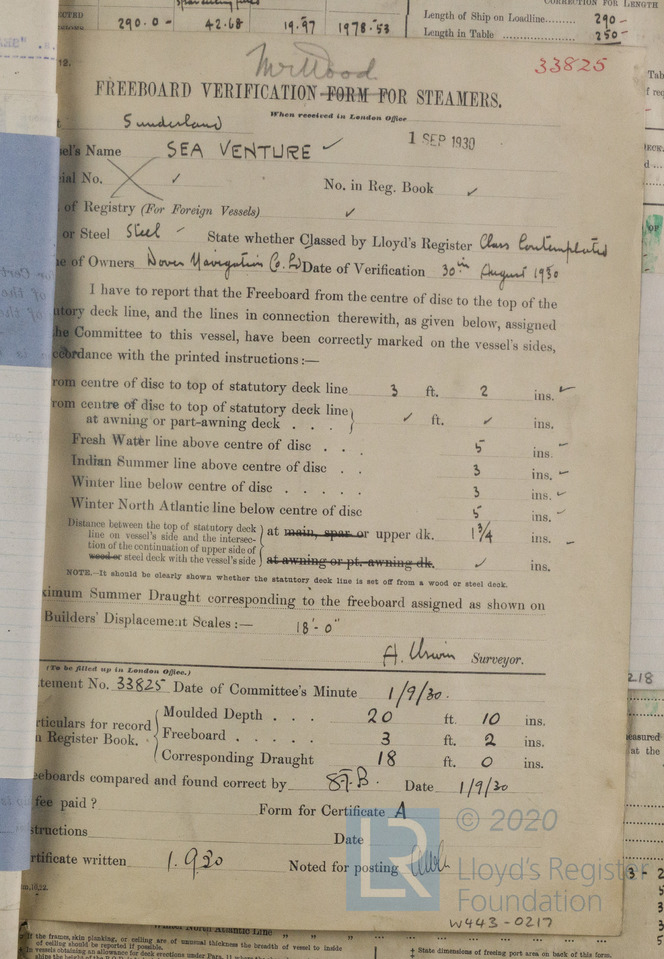 290.0- 42.68 19.97 1978.53
CORRECTION FOR LENGTH
Length of Ship on Loadline......... 290-
Length in Table .................. 250-
12.
Mr Wood
33825
FREEBOARD VERIFICATION FORM FOR STEAMERS.
When received in London Office
Sunderland
1 SEP 1930
el's Name SEA VENTURE ✓
ial No. ✓ No. in Reg. Book ✓
of Registry (For Foreign Vessels) ✓
or Steel Steel State whether Classed by Lloyd's Register Class Contemplated
e of Owners Dover Navigation Co. Ld Date of Verification 30th August 1930
I have to report that the Freeboard from the centre of disc to the top of the
utory deck line, and the lines in connection therewith, as given below, assigned
he Committee to this vessel, have been correctly marked on the vessel's sides,
ccordance with the printed instructions:—
rom centre of disc to top of statutory deck line 3 ft. 2 ins. ✓
rom centre of disc to top of statutory deck line
at awning or part-awning deck . . . ✓ ft. ✓ ins.
Fresh Water line above centre of disc . . . 5 ins. ✓
Indian Summer line above centre of disc . . 3 ins. ✓
Winter line below centre of disc . . . . . 3 ins. ✓
Winter North Atlantic line below centre of disc 5 ins. ✓
Distance between the top of statutory deck
line on vessel's side and the intersec- at main, spar or upper dk. 1 3/4 ins.
tion of the continuation of upper side of
wood or steel deck with the vessel's side at awning or pt. awning dk. ✓ ins.
NOTE.—It should be clearly shown whether the statutory deck line is set off from a wood or steel deck.
ximum Summer Draught corresponding to the freeboard assigned as shown on
Builders' Displacement Scales:— 18'-0"
A. Urwin Surveyor.
(To be filled up in London Office.)
tement No. 33825 Date of Committee's Minute 1/9/30.
Moulded Depth . . . 20 ft. 10 ins.
rticulars for record
n Register Book. Freeboard . . . . . 3 ft. 2 ins.
Corresponding Draught 18 ft. 0 ins.
eeboards compared and found correct by Date 1/9/30
fee paid ? Form for Certificate A
structions Date
rtificate written 1.9.30 Noted for posting
© 2020
Lloyd's Register
Foundation
W443-0217
Winter North Atlantic Line
If the frames, skin planking, or ceiling are of unusual thickness the breadth of vessel to inside
of ceiling should be reported if possible.
In vessels obtaining an allowance for deck erections under Para.
‡ State dimensions of freeing port area on back of this form.
218
easured
at the